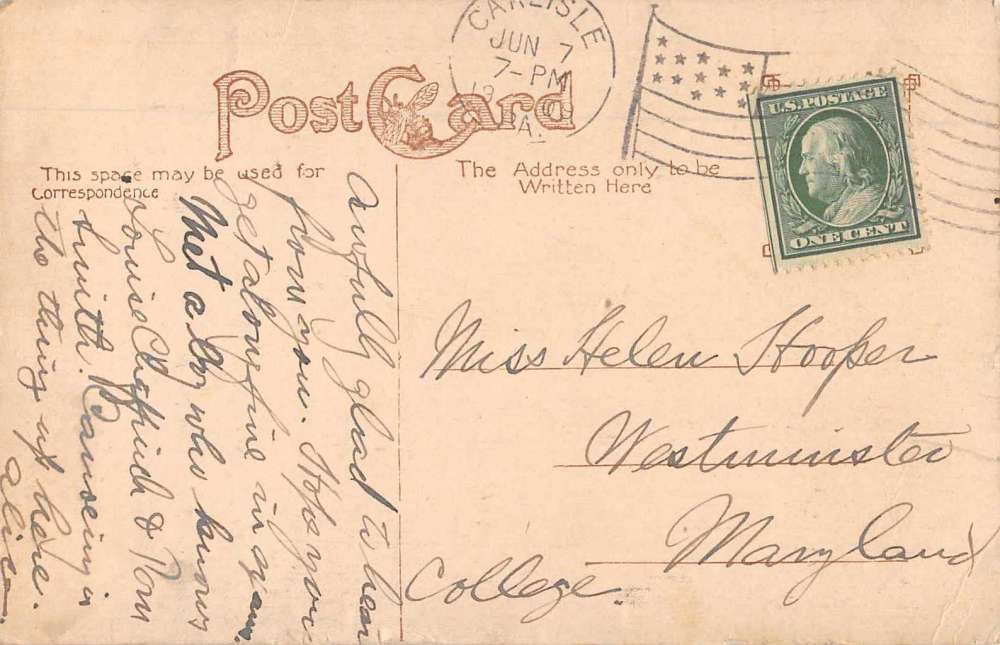 CARLISLE
JUN 7
7-PM
A.
Post Card
U.S. POSTAGE
ONE CENT
This space may be used for
Correspondence
The Address only to be
Written Here
Awfully glad to hear
from you. Hope you
get along fine in exams.
Met a boy who knows
Louise & Tom
Smith. Canoeing is
the thing up here.
Alice.
Miss Helen Hooper
Westminster
Maryland
College.